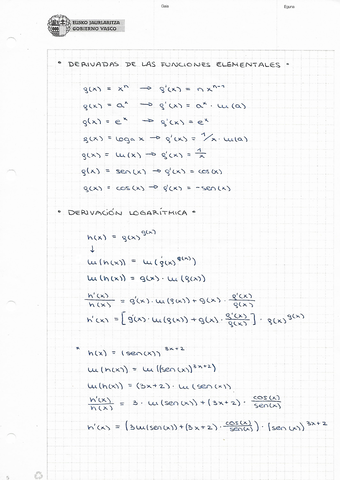 Gaia
Eguna
EUSKO JAURLARITZA
GOBIERNO VASCO
* DERIVADAS DE LAS FUNCIONES ELEMENTALES *
f(x) = xⁿ → f'(x) = n xⁿ⁻¹
f(x) = aˣ → f'(x) = aˣ · ln(a)
f(x) = eˣ → f'(x) = eˣ
f(x) = logₐ x → f'(x) = 1/x · ln(a)
f(x) = ln(x) → f'(x) = 1/x
f(x) = sen(x) → f'(x) = cos(x)
f(x) = cos(x) → f'(x) = -sen(x)
* DERIVACIÓN LOGARÍTMICA *
h(x) = f(x)^g(x)
↓
ln(h(x)) = ln(f(x)^g(x))
ln(h(x)) = g(x) · ln(f(x))
h'(x)/h(x) = g'(x) · ln(f(x)) + g(x) · f'(x)/f(x)
h'(x) = [g'(x) · ln(f(x)) + g(x) · f'(x)/f(x)] · f(x)^g(x)
* h(x) = (sen(x))^3x+2
ln(h(x)) = ln((sen(x)^3x+2)
ln(h(x)) = (3x+2) · ln(sen(x))
h'(x)/h(x) = 3 · ln(sen(x)) + (3x+2) · cos(x)/sen(x)
h'(x) = (3ln(sen(x)) + (3x+2) · cos(x)/sen(x)) · (sen(x))^3x+2